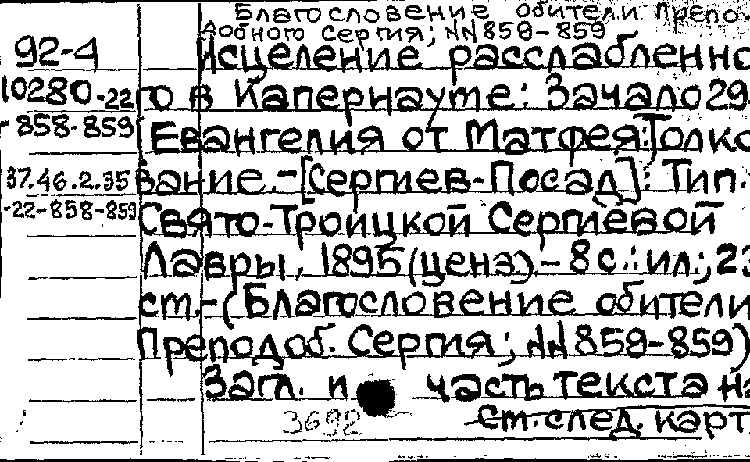 Благословение обители Препо-
добного Сергия; NN 859-859
92-4 Исцеление расслабленно
10280-22 го в Капернауме: Зачало 29
858-859 [Евангелия от Матфея:]Толко
37.46.2.35 вание.-[Сергиев-Посад]: Тип.
-22-858-859 Свято-Троицкой Сергиевой
Лавры, 1895(ценз).-8с.:ил.; 23
ст.-(Благословение обители
Преподоб. Сергия; NN 859-859)
Загл. и часть текста на
3692 См.след.карт